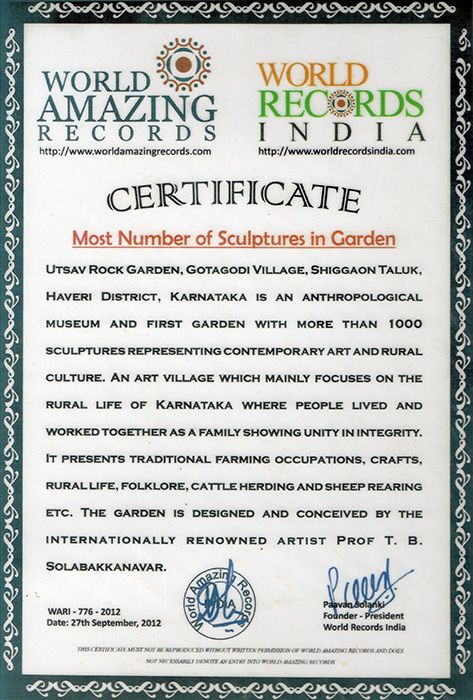 WORLD
AMAZING
RECORDS
http://www.worldamazingrecords.com
WORLD
RECORDS
INDIA
http://www.worldrecordsindia.com
CERTIFICATE
Most Number of Sculptures in Garden
Utsav Rock Garden, Gotagodi Village, Shiggaon Taluk,
Haveri District, Karnataka is an anthropological
museum and first garden with more than 1000
sculptures representing contemporary art and rural
culture. An art village which mainly focuses on the
rural life of Karnataka where people lived and
worked together as a family showing unity in integrity.
It presents traditional farming occupations, crafts,
rural life, folklore, cattle herding and sheep rearing
etc. The garden is designed and conceived by the
internationally renowned artist Prof T. B.
Solabakkanavar.
World Amazing Records
INDIA
WARI - 776 - 2012
Date: 27th September, 2012
Paavan Solanki
Founder - President
World Records India
THIS CERTIFICATE MUST NOT BE REPRODUCED WITHOUT WRITTEN PERMISSION OF WORLD AMAZING RECORDS AND DOES
NOT NECESSARILY DENOTE AN ENTRY INTO WORLD AMAZING RECORDS